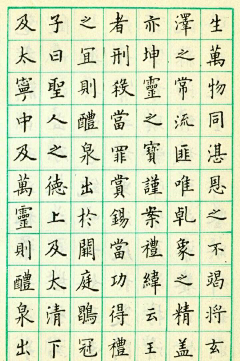 生萬物同湛恩之不竭將玄
澤之常流匪唯乹象之精盖
亦坤之靈之寶謹案禮緯云王
者刑殺當罪賞錫當功得禮
之冝則醴泉出於闕庭鶡冠
子曰聖人之德上及太清下
及太寧中及萬靈則醴泉出